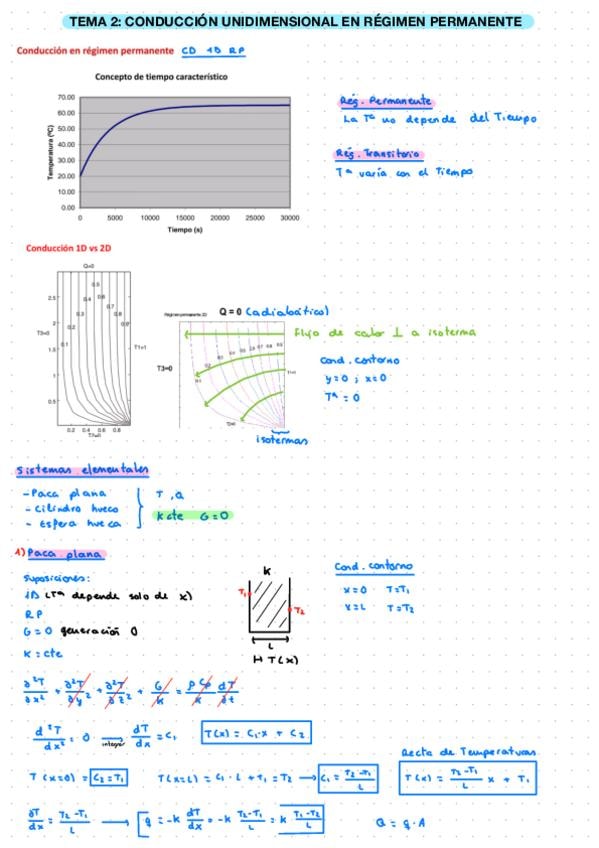 TEMA 2: CONDUCCIÓN UNIDIMENSIONAL EN RÉGIMEN PERMANENTE
Conducción en régimen permanente CD 1D RP
Concepto de tiempo característico
70.00
60.00
50.00
40.00
30.00
20.00
10.00
0.00
Temperatura (ºC)
0 5000 10000 15000 20000 25000 30000
Tiempo (s)
Rég. Permanente
La Tª no depende del Tiempo
Rég. Transitorio
Tª varía con el Tiempo
Conducción 1D vs 2D
Q=0
2.5
2
1.5
1
0.5
T3=0
0.1
0.2
0.3
0.4
0.5
0.6
0.7
0.8
0.9
T1=1
0.2 0.4 0.6 0.8
Régimen permanente 2D
Q = 0 (adiabático)
T3=0
Flujo de calor ⊥ a isoterma
Cond. contorno
y=0 ; x=0
Tª = 0
isotermas
Sistemas elementales
- Paca plana
- Cilindro hueco
- Esfera hueca
T, Q
K cte G=0
1) Paca plana
Suposiciones:
1D (Tª depende solo de x)
RP
G=0 generación 0
K = cte
K
T₁
T₂
L
H T(x)
Cond. contorno
x=0 T=T₁
x=L T=T₂
∂²T/∂x² + ∂²T/∂y² + ∂²T/∂z² + G/K = ρCp/K dT/∂t
d²T/dx² = 0 → integrar dT/dx = C₁ T(x) = C₁·x + C₂
Recta de Temperaturas
T(x=0) = C₂=T₁ T(x=L) = C₁·L + T₁ = T₂ → C₁ = T₂-T₁/L T(x) = T₂-T₁/L x + T₁
∂T/dx = T₂-T₁/L → q = -K dT/dx = -K T₂-T₁/L = K T₁-T₂/L Q = q·A